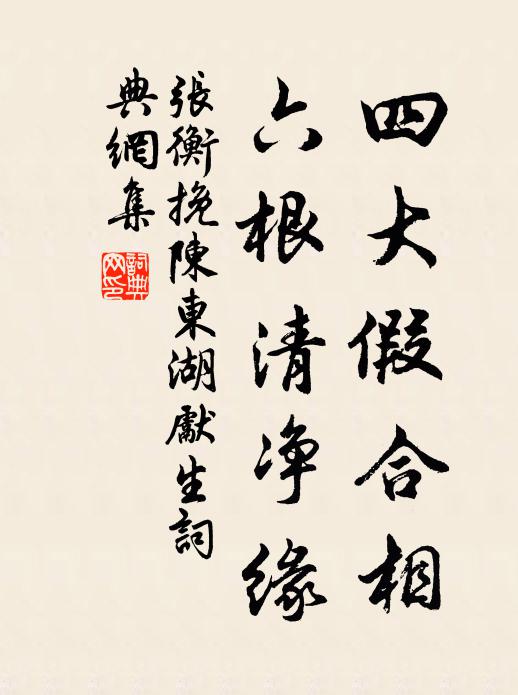 四大假合相
六根清净緣
張衡挽陳東湖獻生詞
典網集
詞典
网印